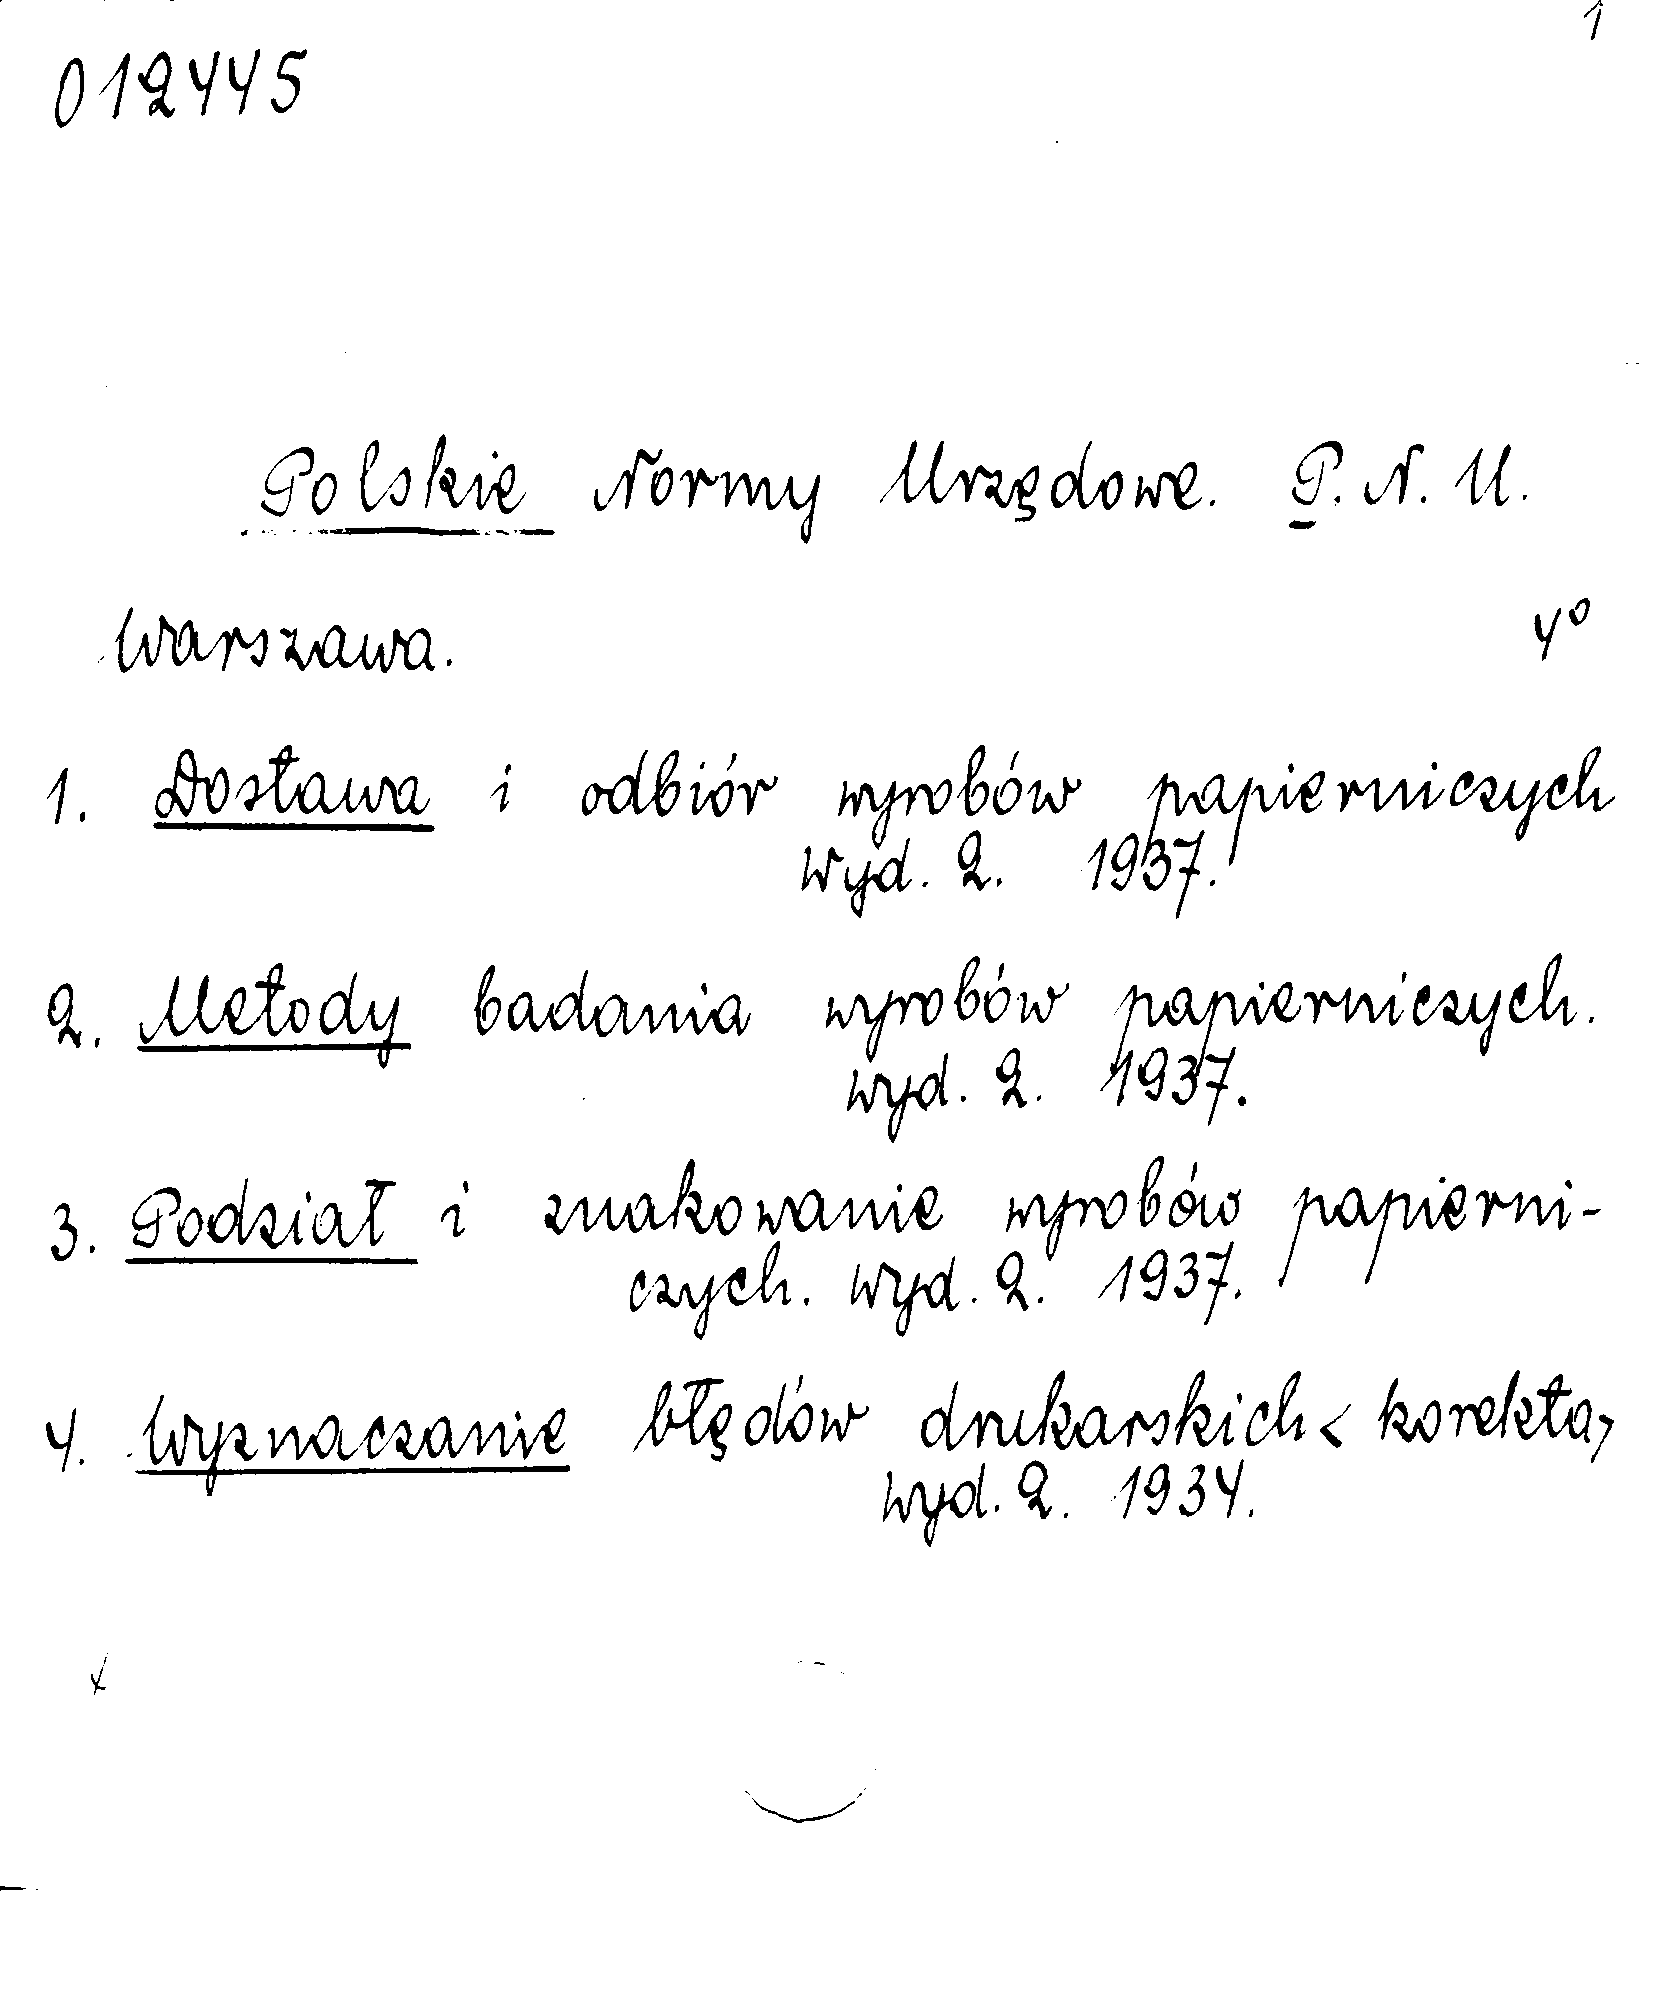 1
012445
Polskie Normy Urzędowe. P. N. U.
Warszawa. 4°
1. Dostawa i odbiór wyrobów papierniczych
wyd. 2. 1937.
2. Metody badania wyrobów papierniczych.
wyd. 2. 1937.
3. Podział i znakowanie wyrobów papierni-
czych. wyd. 2. 1937.
4. Wyznaczanie błędów drukarskich < korekta,
wyd. 2. 1934.